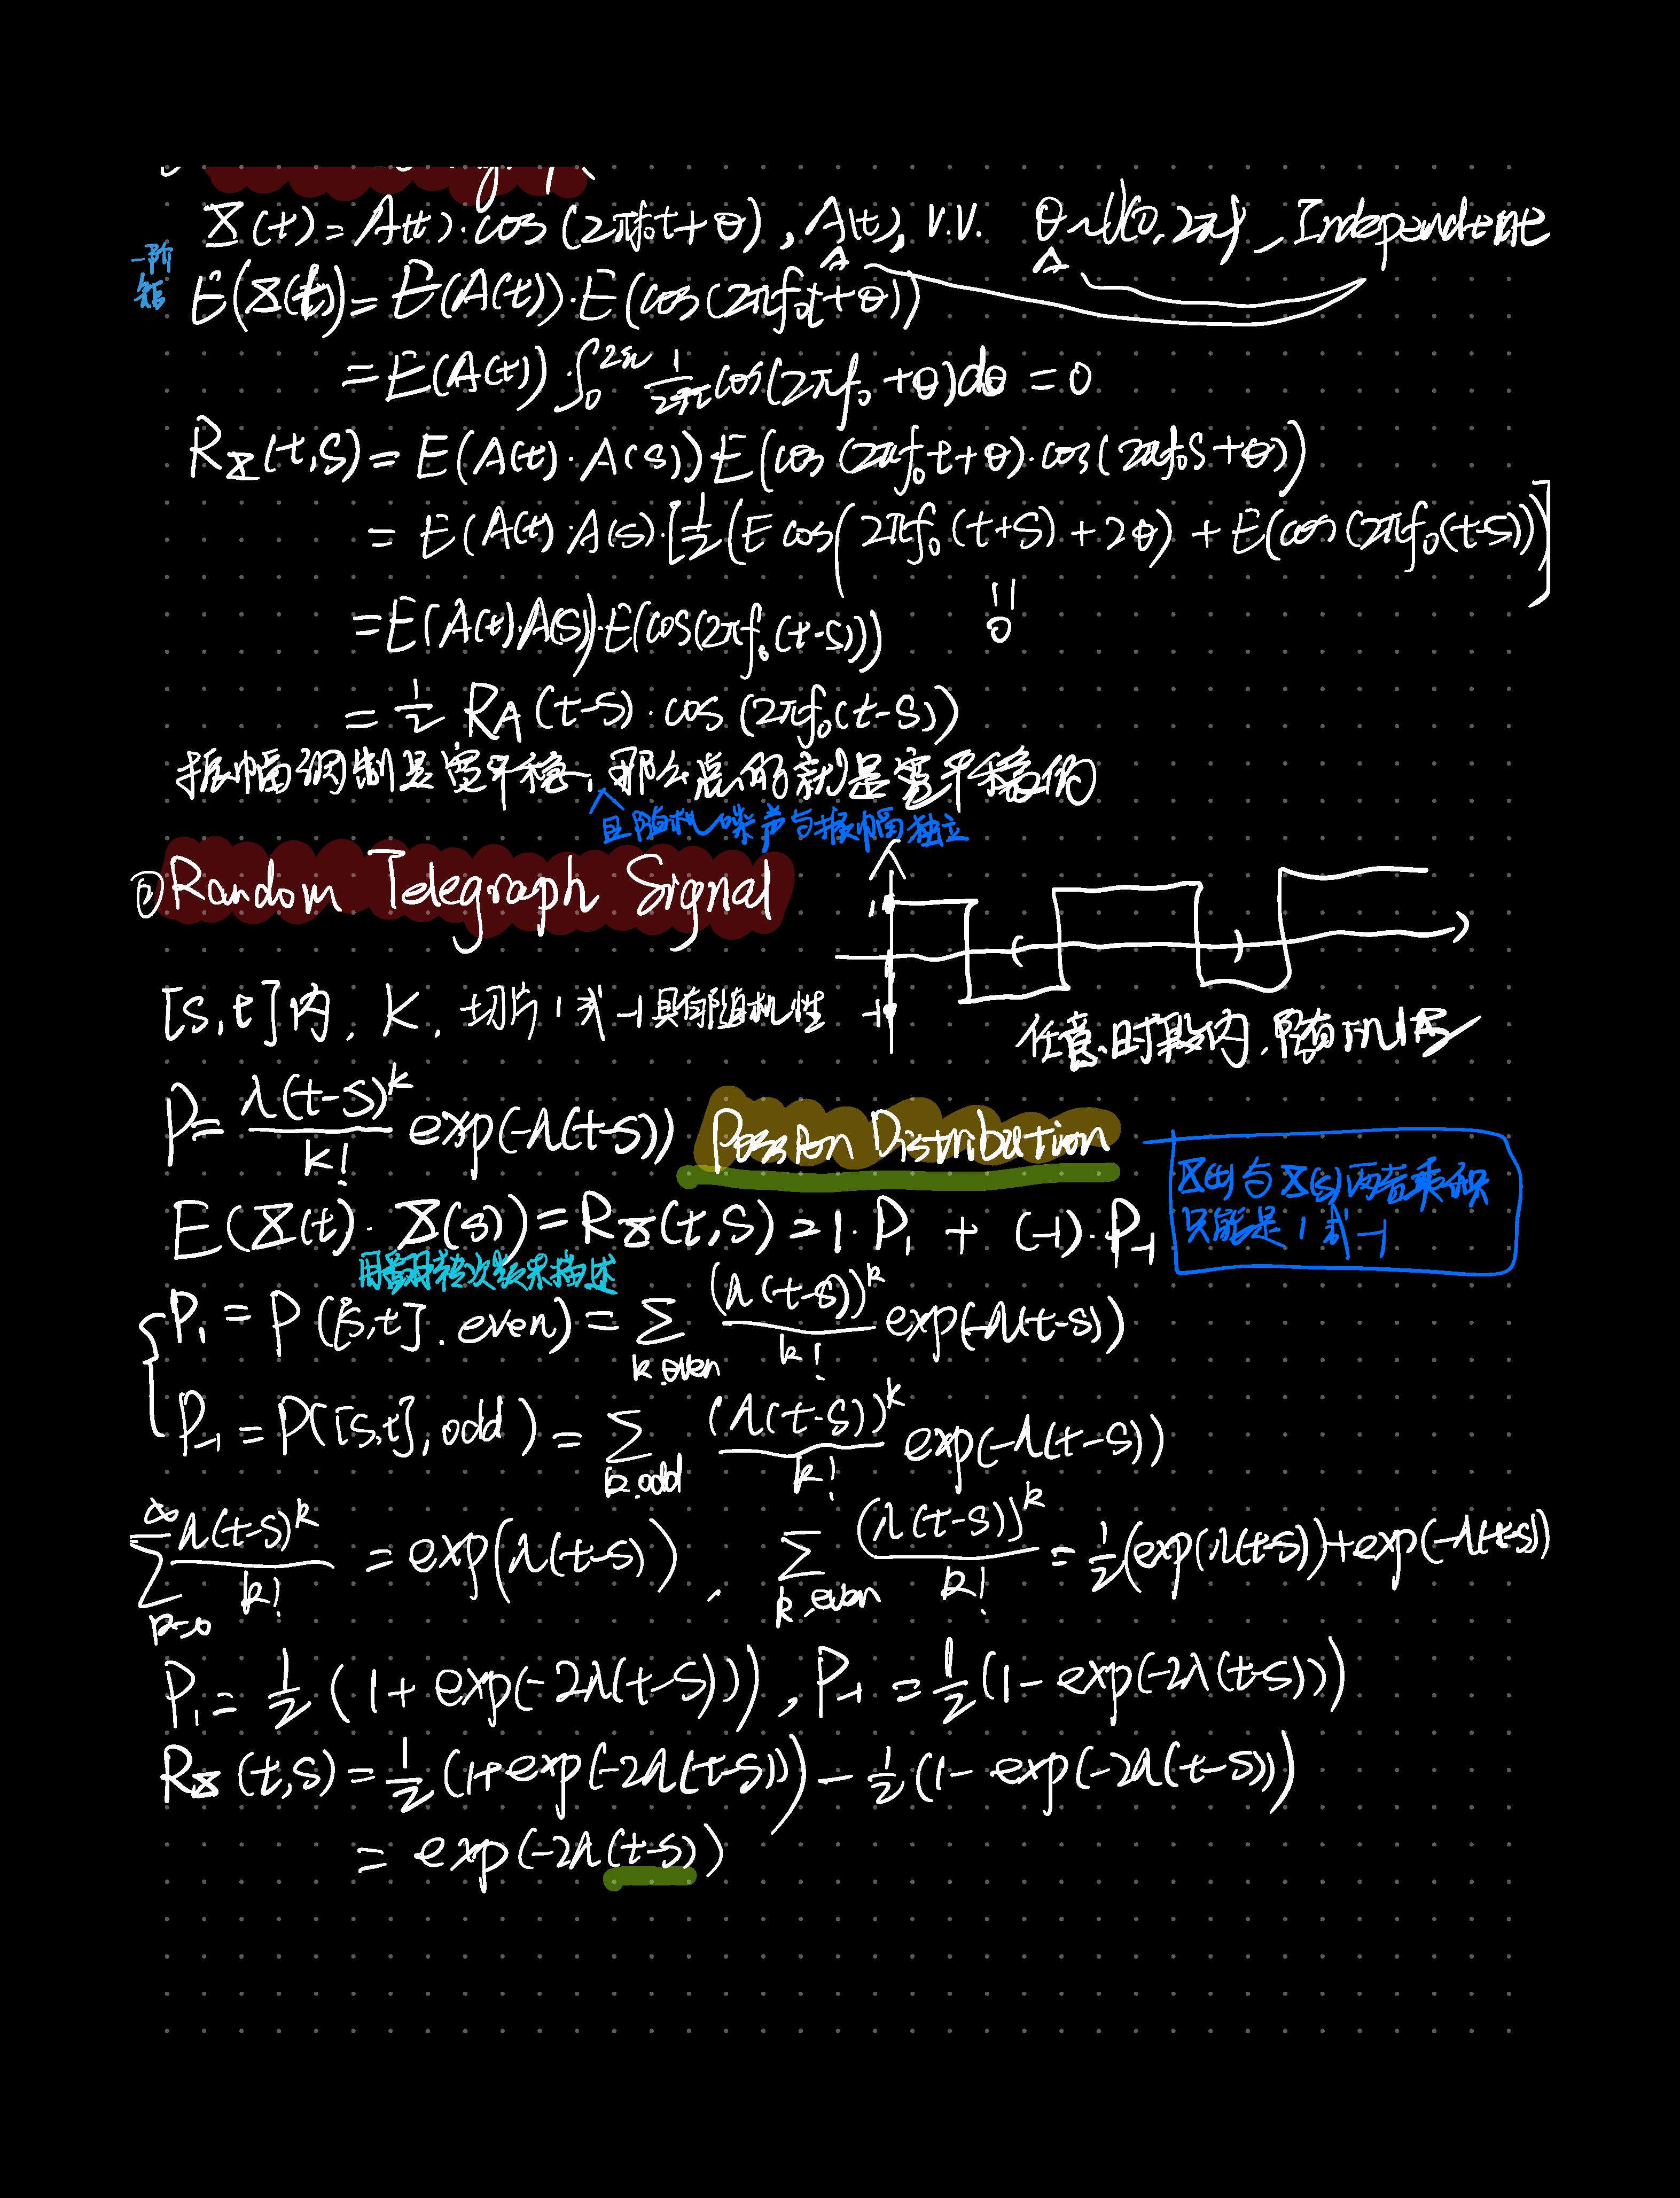 X(t) = A(t)·cos(2πf₀t+θ), A(t), r.v. θ~U(0, 2π), Independent
一阶矩
E(X(t)) = E(A(t))·E(cos(2πf₀t+θ))
= E(A(t))·∫₀^2π 1/2π cos(2πf₀+θ)dθ = 0
R_X(t,s) = E(A(t)·A(s))E(cos(2πf₀t+θ)·cos(2πf₀s+θ))
= E(A(t)·A(s)·[1/2(E cos(2πf₀(t+s)+2θ) + E(cos(2πf₀(t-s))]
= E(A(t)·A(s))·E(cos(2πf₀(t-s))) 0
= 1/2 R_A(t-s)·cos(2πf₀(t-s))
振幅调制是宽平稳, 那么总的就是宽平稳的
且随机噪声与振幅独立
② Random Telegraph Signal
1
[s,t]内, K, 切片 1或-1具有随机性 -1
任意时段内,
P = λ(t-s)^k / k! exp(-λ(t-s)) Possion Distribution
X(t)与X(s)两者乘积
只能是 1 或 -1
E(X(t)·X(s)) = R_X(t,s) = 1·P₁ + (-1)·P₋₁
用翻转次数来描述
P₁ = P([s,t]. even) = Σ_{k.even} (λ(t-s))^k / k! exp(-λ(t-s))
P₋₁ = P([s,t], odd) = Σ_{k.odd} (λ(t-s))^k / k! exp(-λ(t-s))
Σ_{k=0}^∞ λ(t-s)^k / k! = exp(λ(t-s)), Σ_{k.even} (λ(t-s))^k / k! = 1/2(exp(λ(t-s))+exp(-λ(t-s))
P₁ = 1/2 (1+exp(-2λ(t-s))), P₋₁ = 1/2(1-exp(-2λ(t-s)))
R_X(t,s) = 1/2(1+exp(-2λ(t-s))) - 1/2(1-exp(-2λ(t-s)))
= exp(-2λ(t-s))